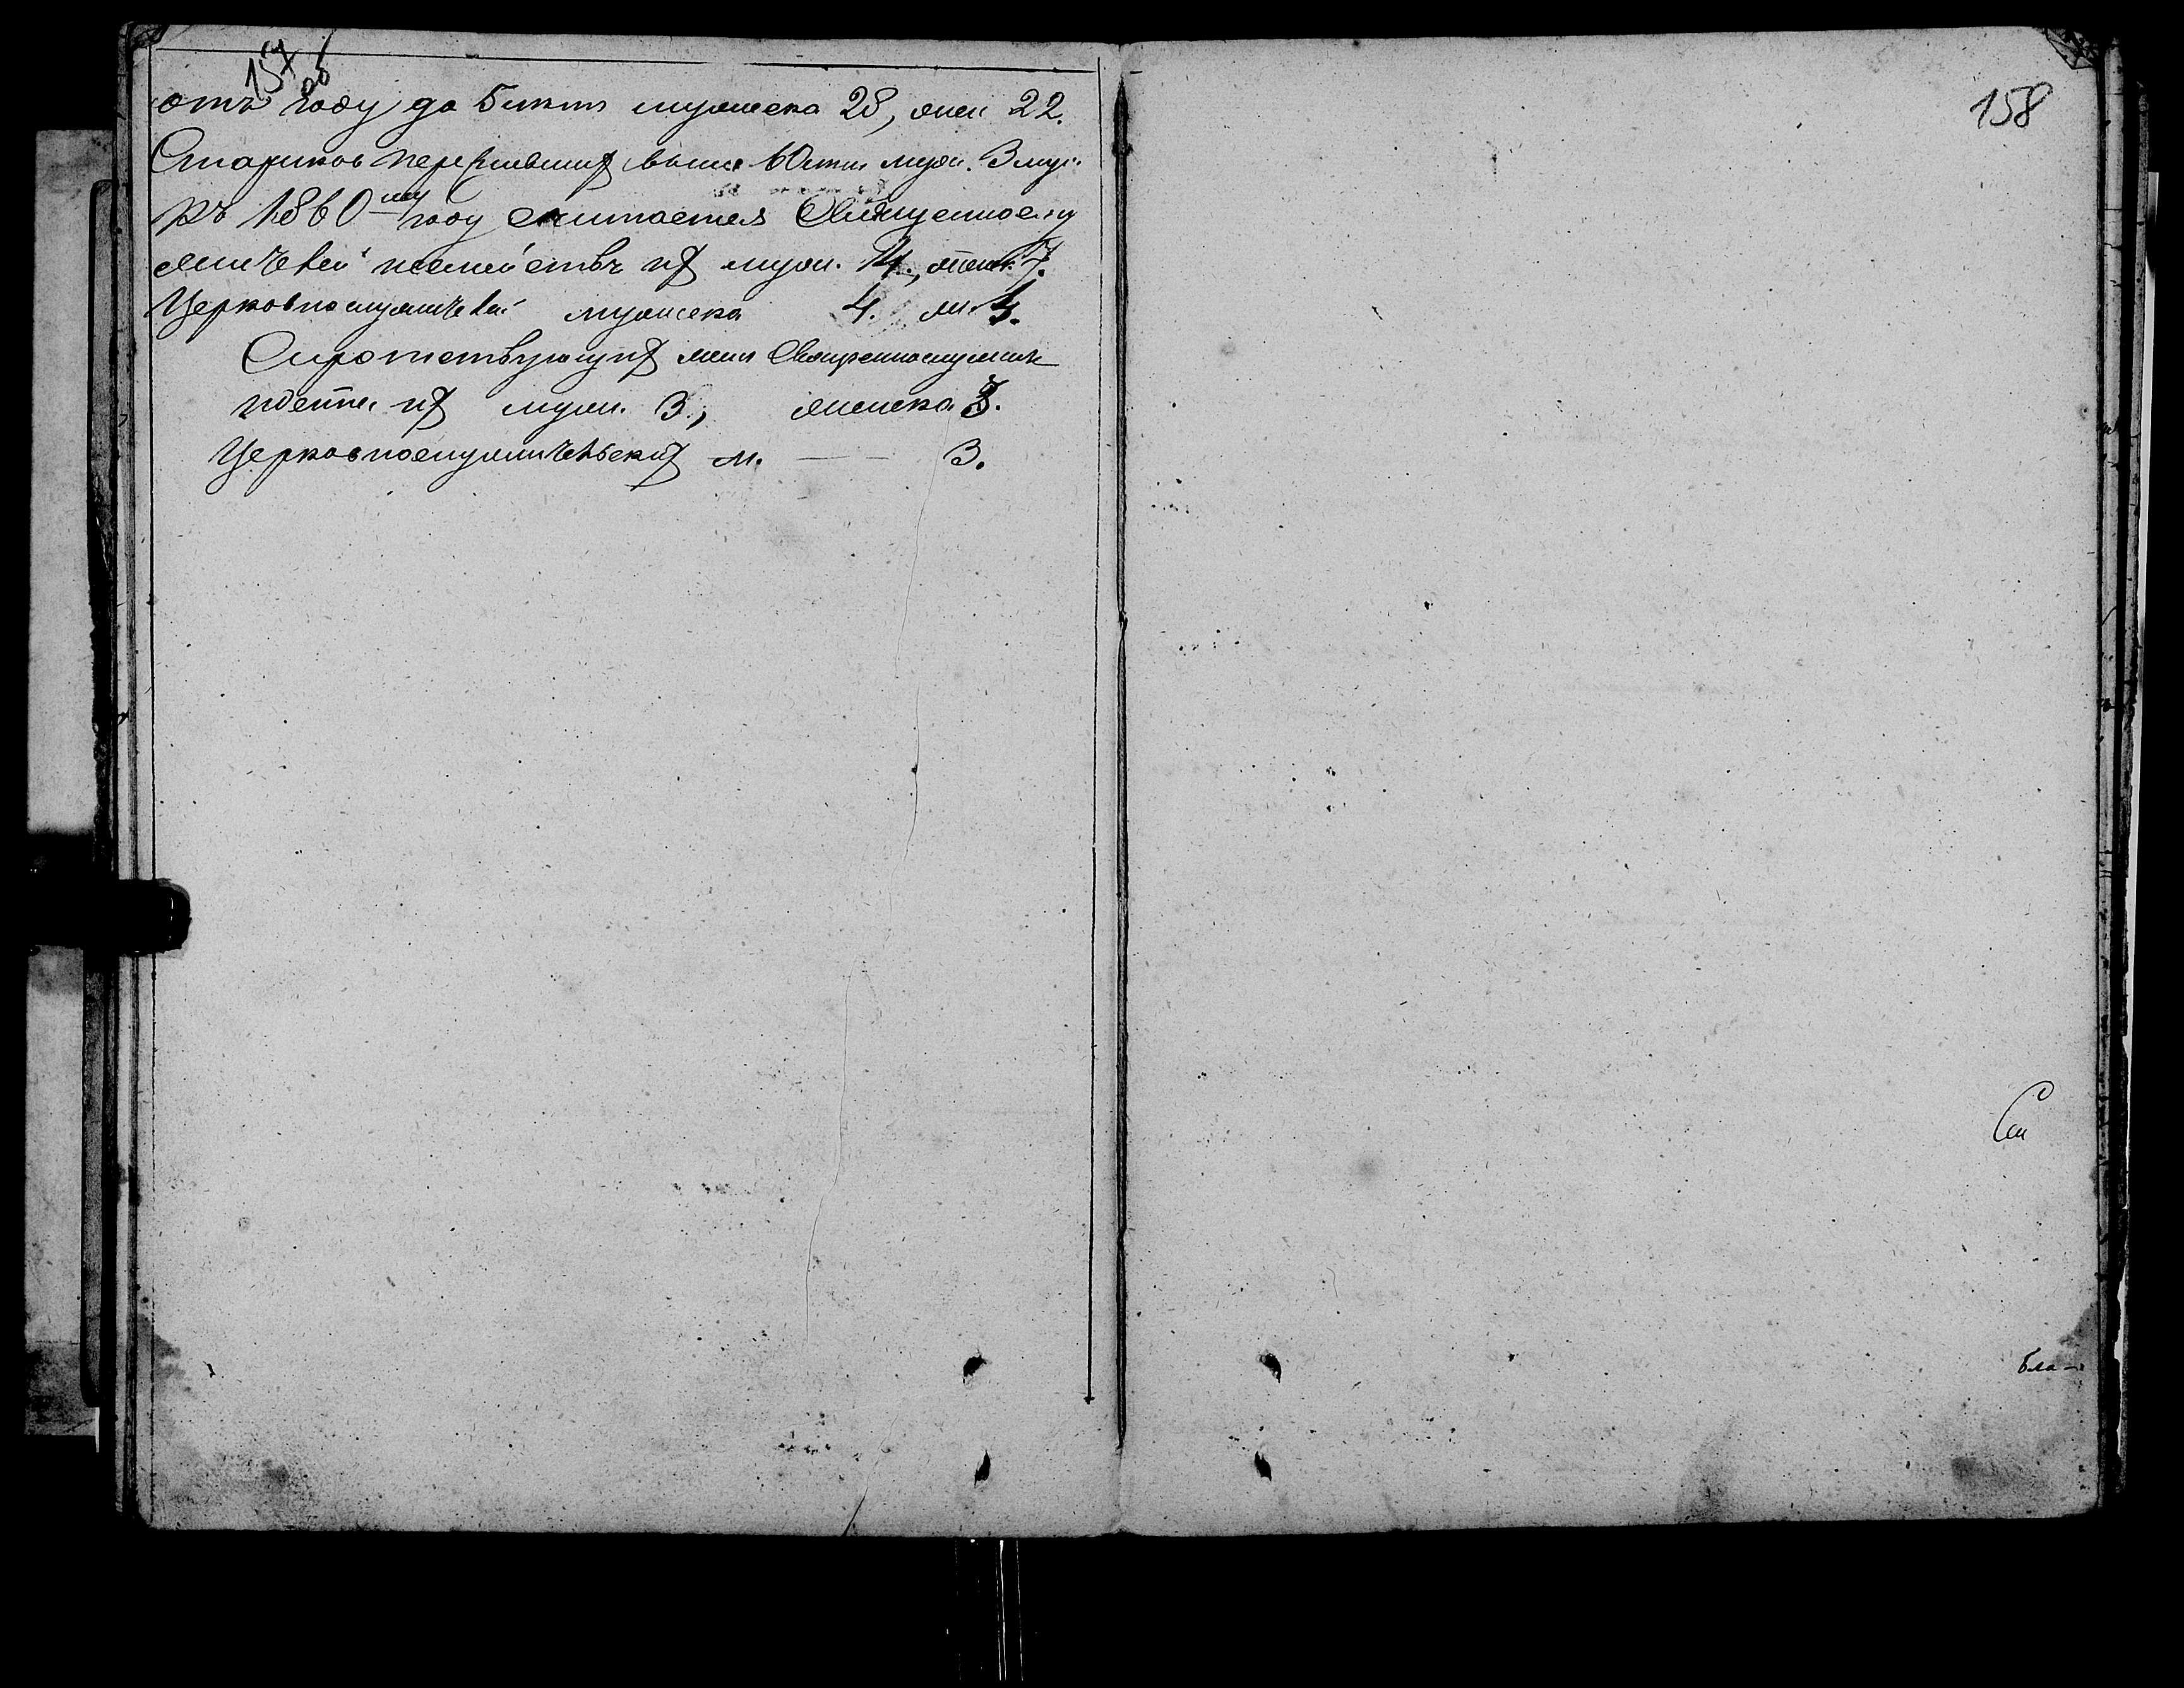 157 об
отъ году до 5 летъ мужеска 28, жен 22.
Стариков пережившихъ выше 60 лети муж. 3 муж
Къ 1860му году считается Священнослу
жителей и семействъ ихъ муж. 14., женск. 7.
Церковнослужителей мужеска 4. ж. 4.
Сиротствующихъ Священнослужите
и детей ихъ муж. 3., женска 3.
Церковнослужительскихъ м. — — 3.
158
Сви
Бла-